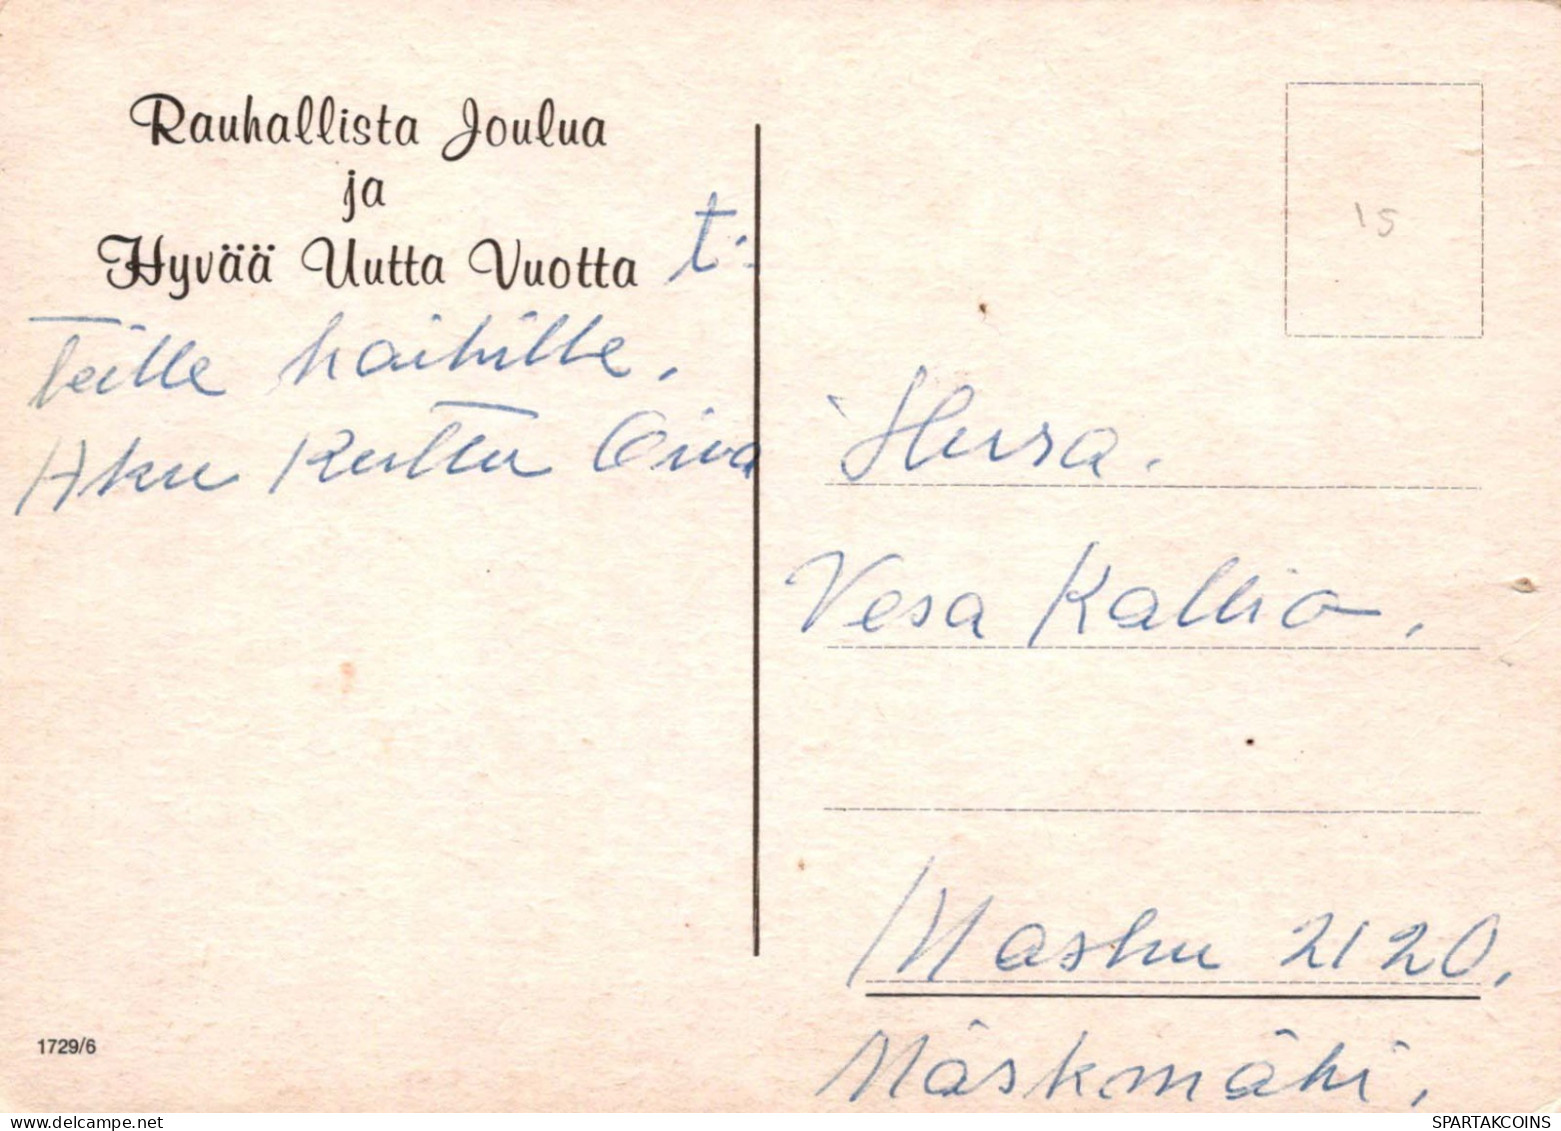 Rauhallista Joulua
ja
Hyvää Uutta Vuotta
t:
Teille kaikille.
Aku Kerttu Oiva
15
Herra.
Vesa Kallio.
Masku 2120.
Mäskmäki.
1729/6
SPARTAKCOINS